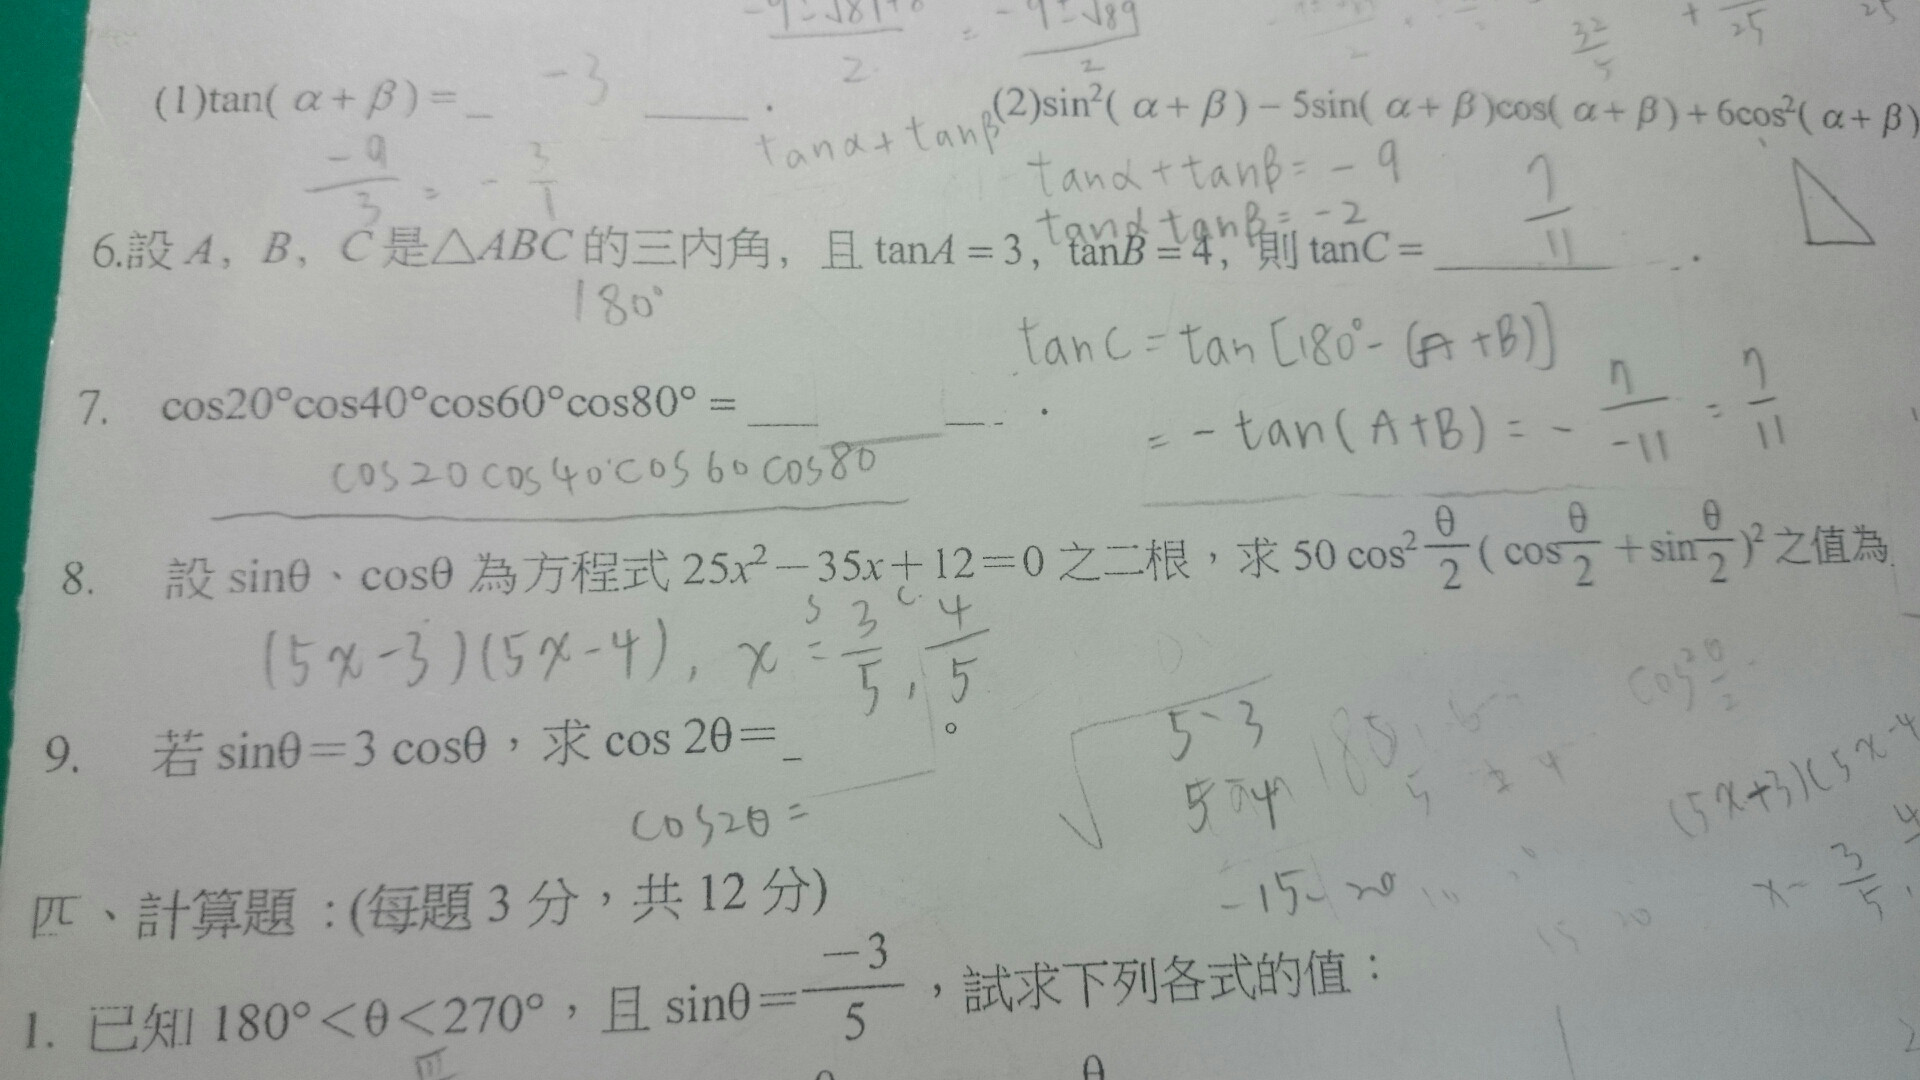 (1)tan( α + β ) = -3 .
(2)sin²( α + β ) − 5sin( α + β )cos( α + β ) + 6cos²( α + β )
-9/3 = -3/1
tanα + tanβ
tanα + tanβ = -9
tanα tanβ = -2
6.設 A, B, C 是△ABC 的三內角, 且 tanA = 3, tanB = 4, 則 tanC = 7/11 .
180°
tanC = tan [180° - (A + B)]
= - tan(A+B) = - 7/-11 = 7/11
7. cos20°cos40°cos60°cos80° =
cos20 cos40 cos60 cos80
8. 設 sinθ、cosθ 為方程式 25x²－35x＋12＝0 之二根，求 50 cos² θ/2 ( cos θ/2 ＋sin θ/2 )² 之值為
(5x-3)(5x-4), x = 3/5, 4/5
9. 若 sinθ＝3 cosθ，求 cos 2θ＝ 。
cos2θ =
5 -3
5 -4
-15-20
(5x+3)(5x-4
四、計算題：(每題 3 分，共 12 分)
1. 已知 180°＜θ＜270°，且 sinθ＝ -3/5 ，試求下列各式的值：